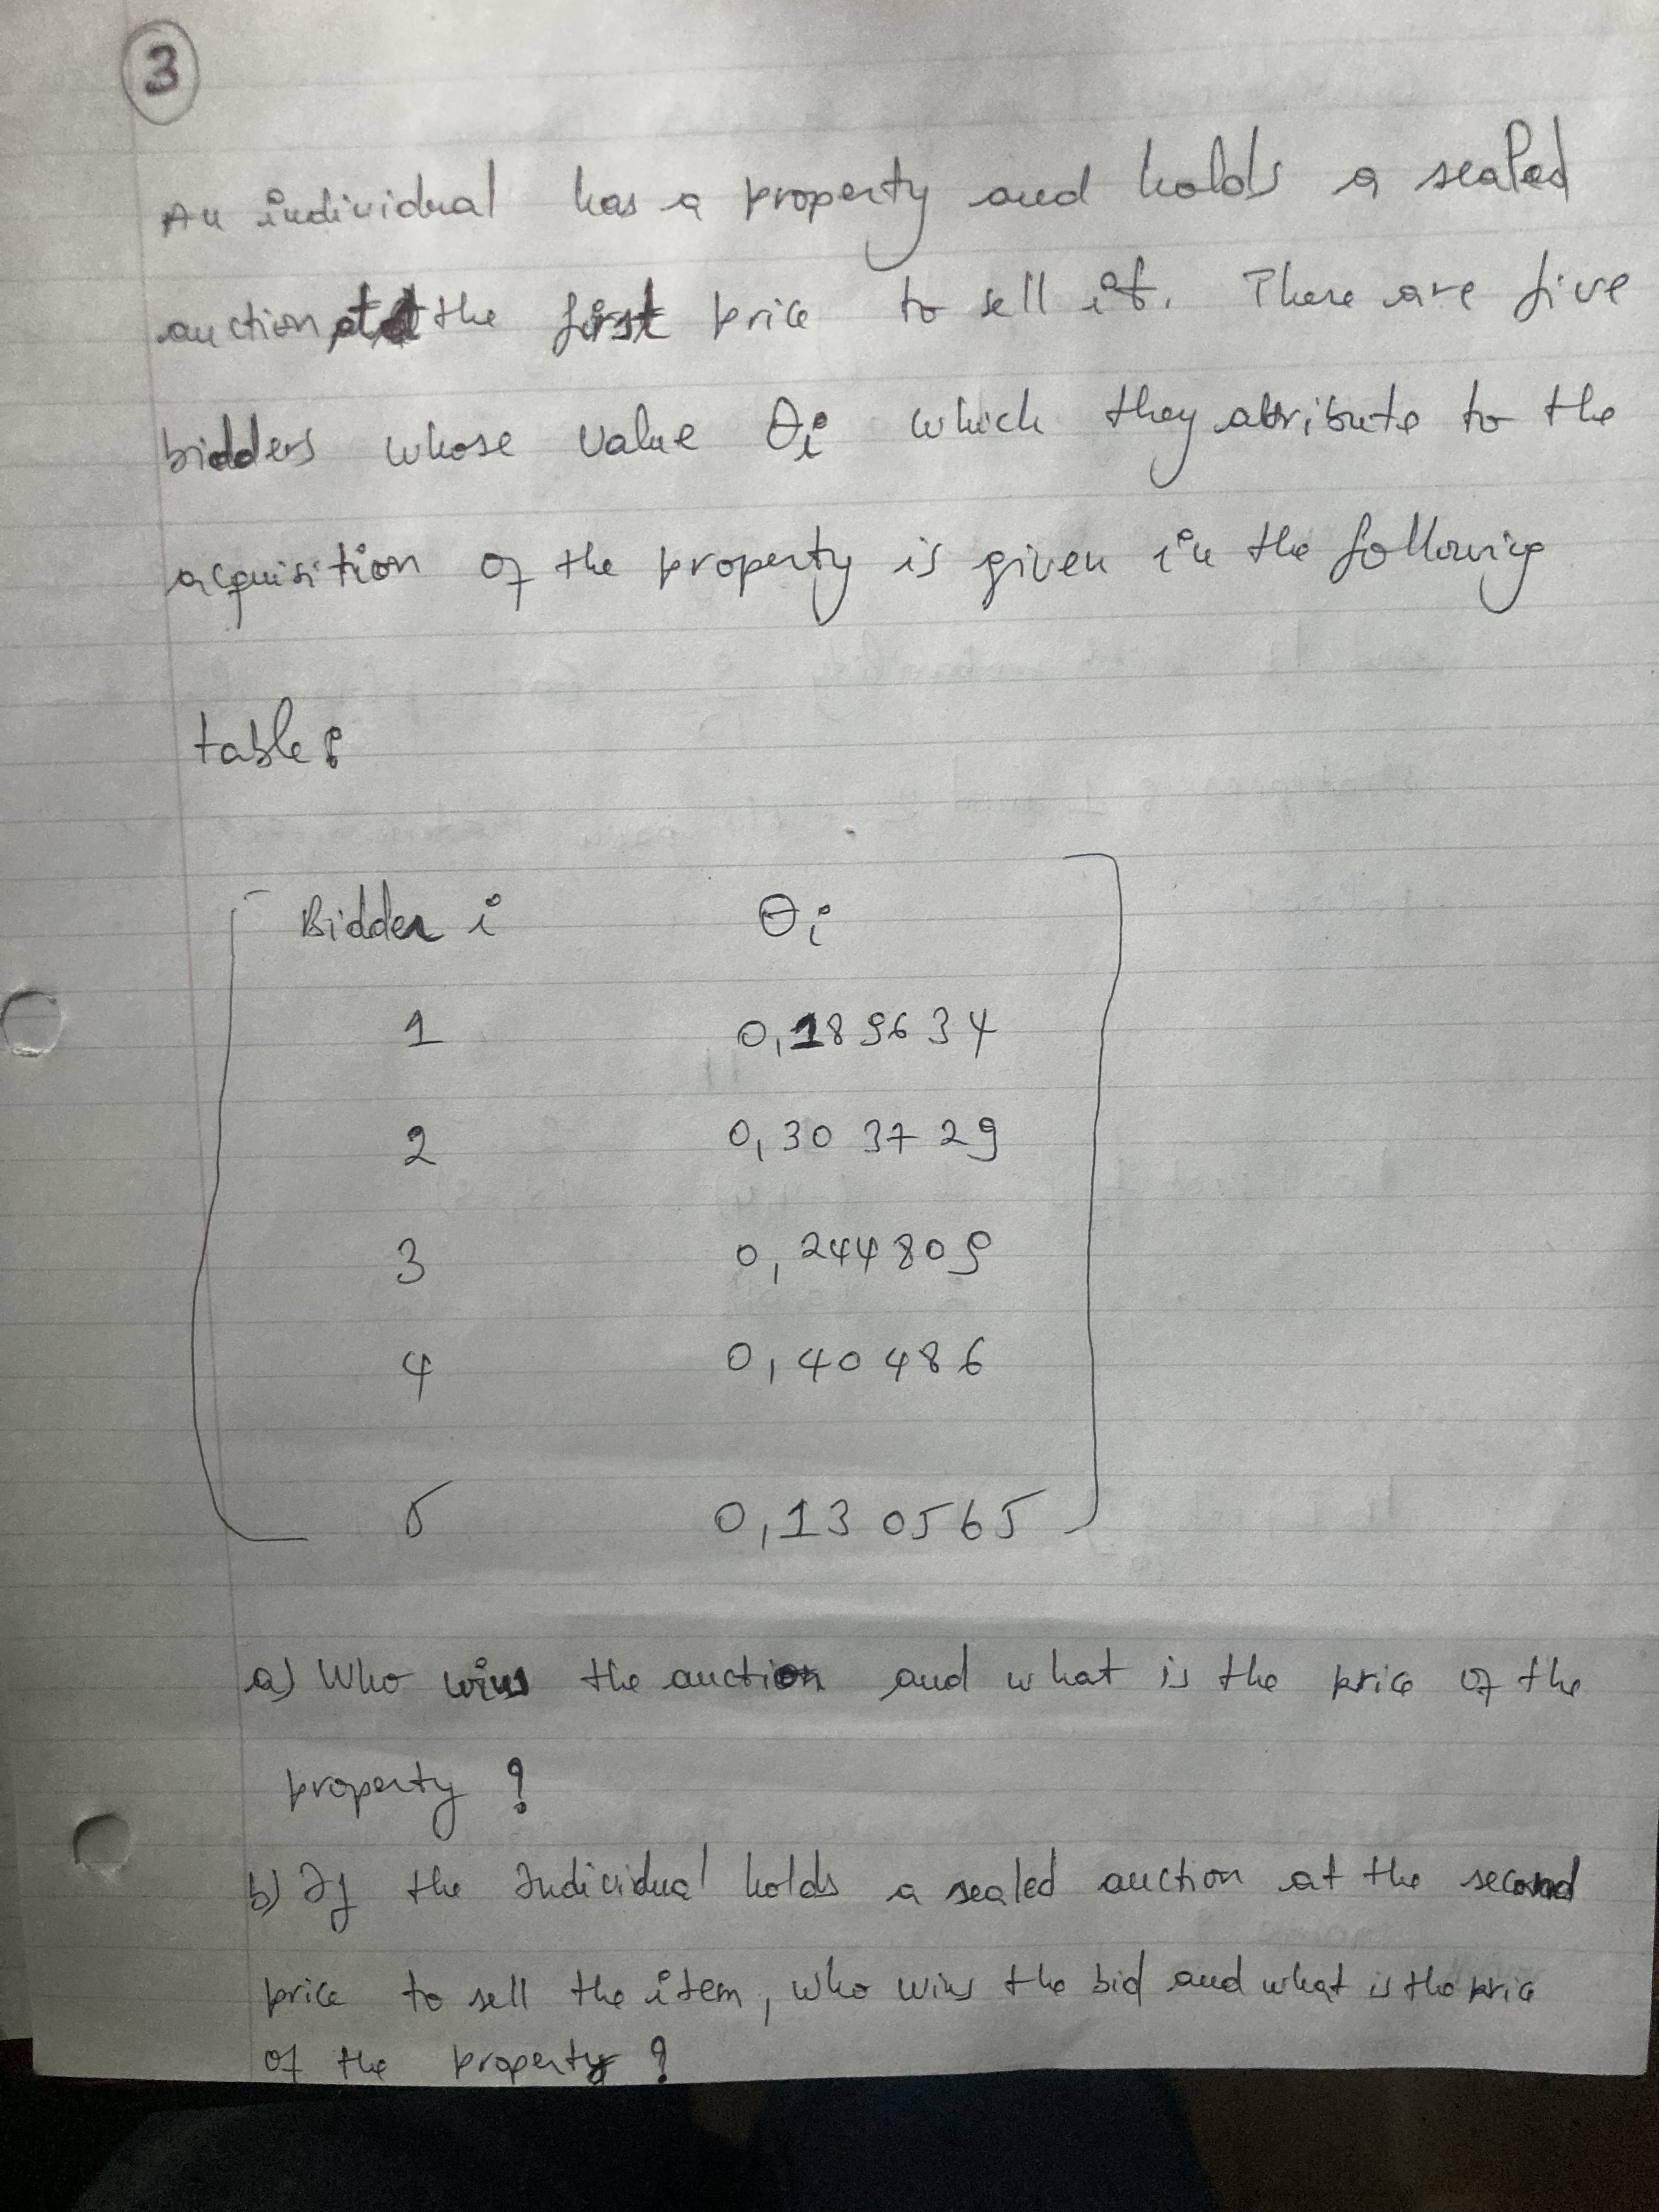 3
An individual has a property and holds a sealed
auction at the first price to sell it. There are five
bidders whose value θi which they attribute to the
acquisition of the property is given in the following
table:
Bidder i θi
1 0,189634
2 0,303729
3 0,244809
4 0,40486
5 0,130565
a) Who wins the auction and what is the price of the
property ?
b) If the Individual holds a sealed auction at the second
price to sell the item, who wins the bid and what is the price
of the property ?